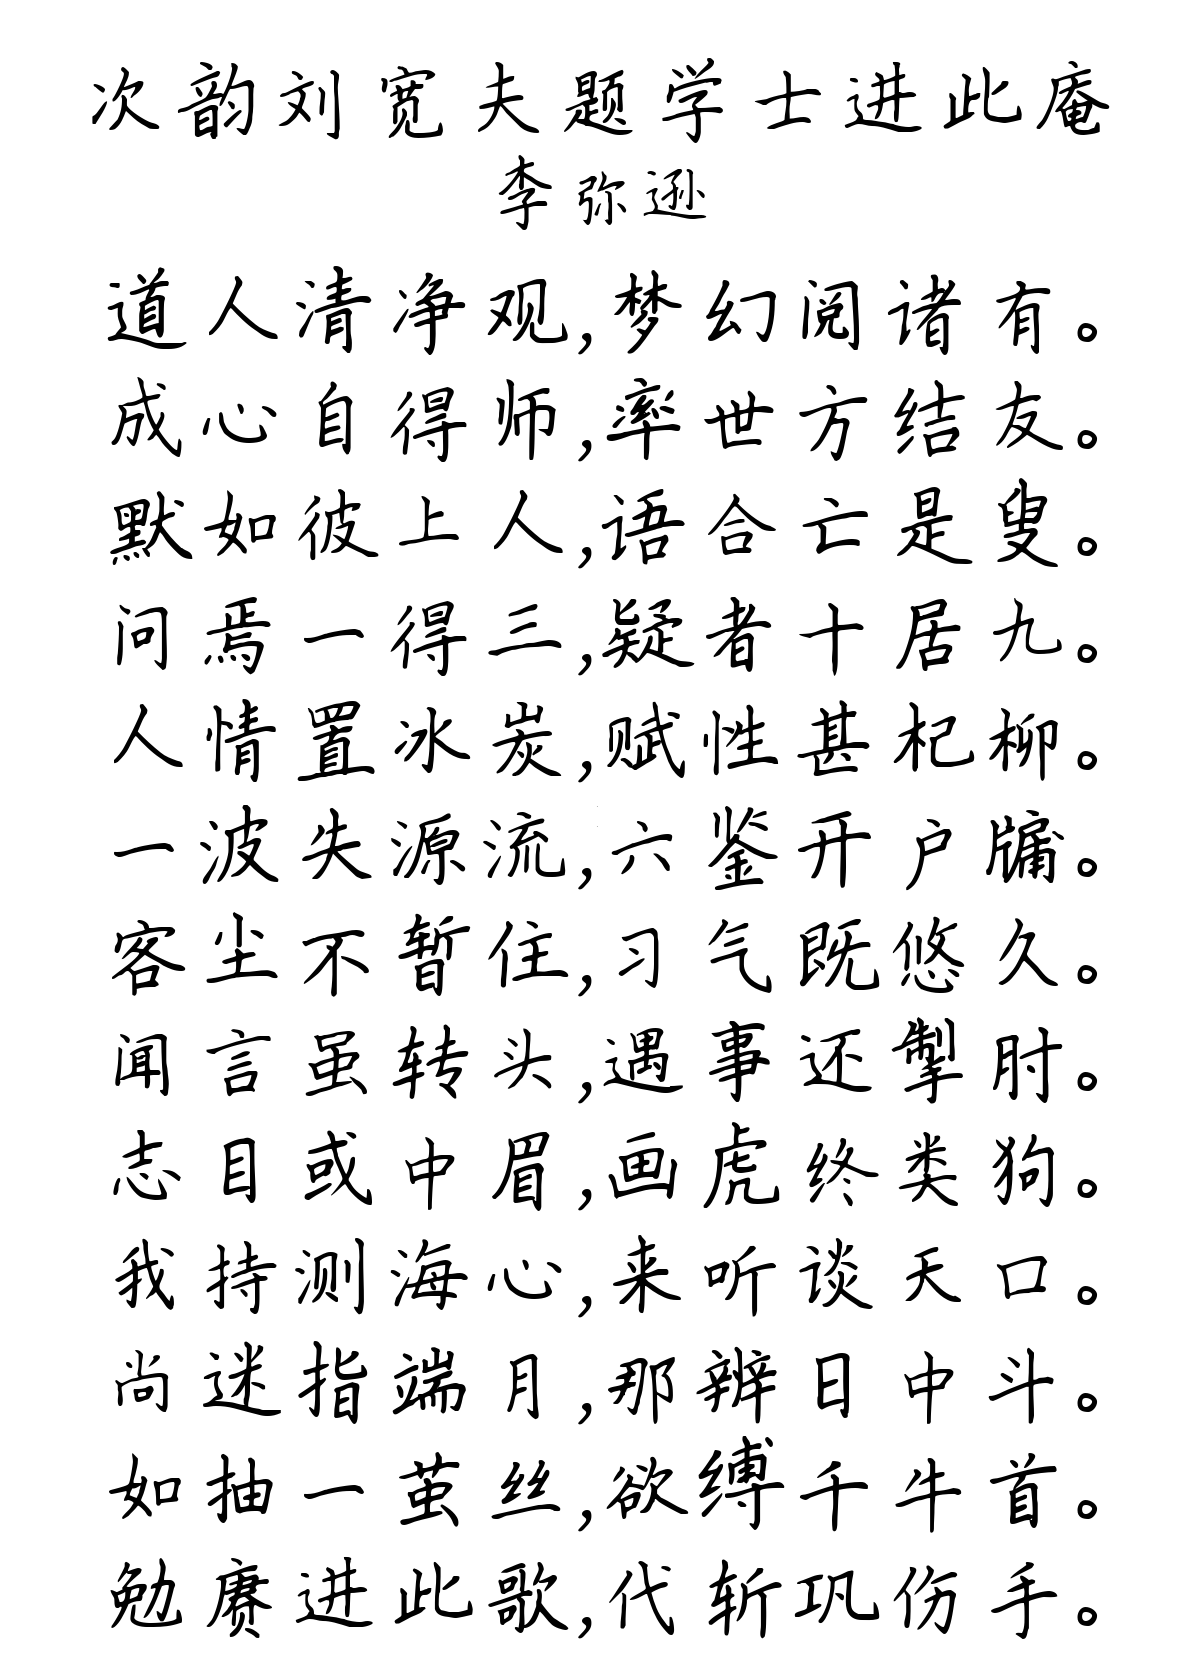 次韵刘宽夫题学士进此庵
李弥逊
道人清净观,梦幻阅诸有。
成心自得师,率世方结友。
默如彼上人,语合亡是叟。
问焉一得三,疑者十居九。
人情置冰炭,赋性甚杞柳。
一波失源流,六鉴开户牖。
客尘不暂住,习气既悠久。
闻言虽转头,遇事还掣肘。
志目或中眉,画虎终类狗。
我持测海心,来听谈天口。
尚迷指端月,那辨日中斗。
如抽一茧丝,欲缚千牛首。
勉赓进此歌,代斩巩伤手。